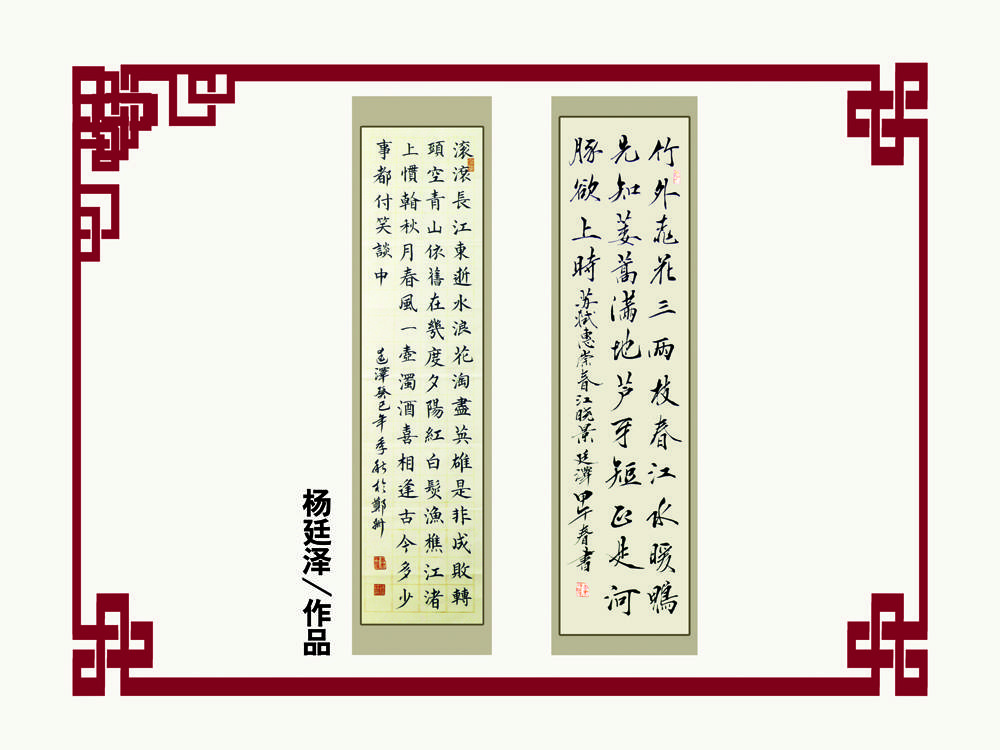 竹外桃花三两枝春江水暖鴨
先知蒌蒿满地芦牙短正是河
豚欲上時 苏轼惠崇春江晚景 廷澤 甲午春書
滚滚長江東逝水浪花淘盡英雄是非成敗轉
頭空青山依舊在幾度夕陽紅白髮漁樵江渚
上慣翰秋月春風一壺濁酒喜相逢古今多少
事都付笑談中 廷澤癸巳年季秋於鄭州
杨廷泽/作品